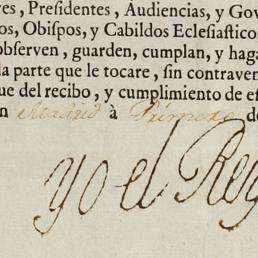 res, Presidentes, Audiencias, y Gov
os, Obispos, y Cabildos Eclesiastico
observen, guarden, cumplan, y haga
la parte que le tocare, sin contraven
ue del recibo, y cumplimiento de es
n Madrid à Primero de
yo el Rey